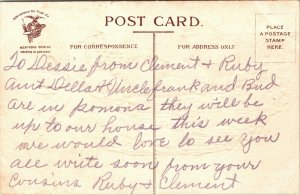 POST CARD.
PLACE
A POSTAGE
STAMP
HERE
FOR CORRESPONDENCE
FOR ADDRESS ONLY
To Dessie from Clement & Ruby
aunt Della & Uncle frank and Bud
are in pomona they will be
up to our house this week
we would love to see you
all write soon from your
cousins Ruby & Clement